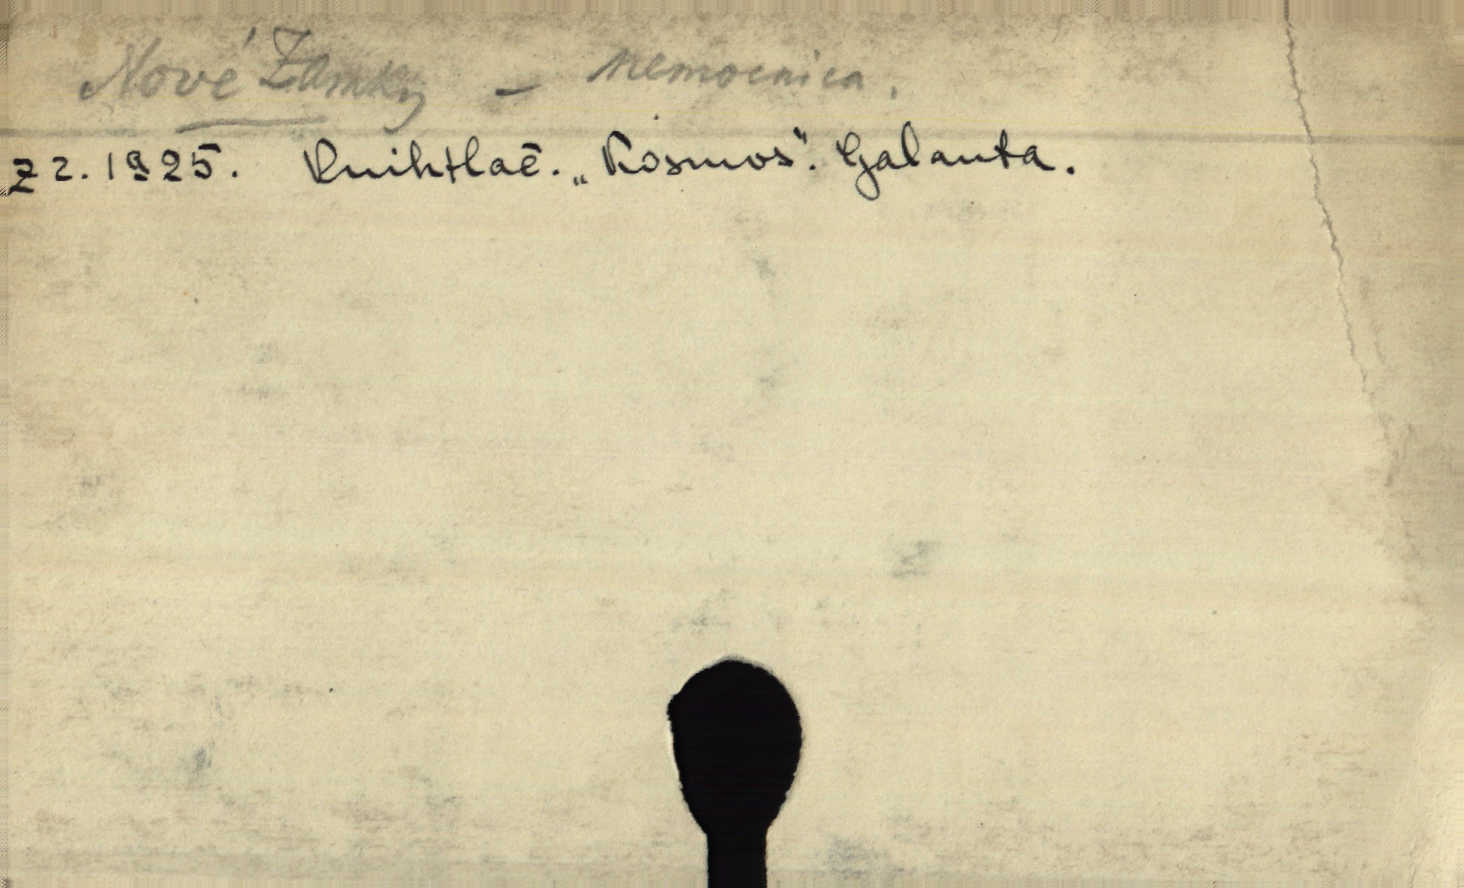 Nové Zámky - nemocnica.
Z 2. 1925. Knihtlač. „Kosmos". Galanta.